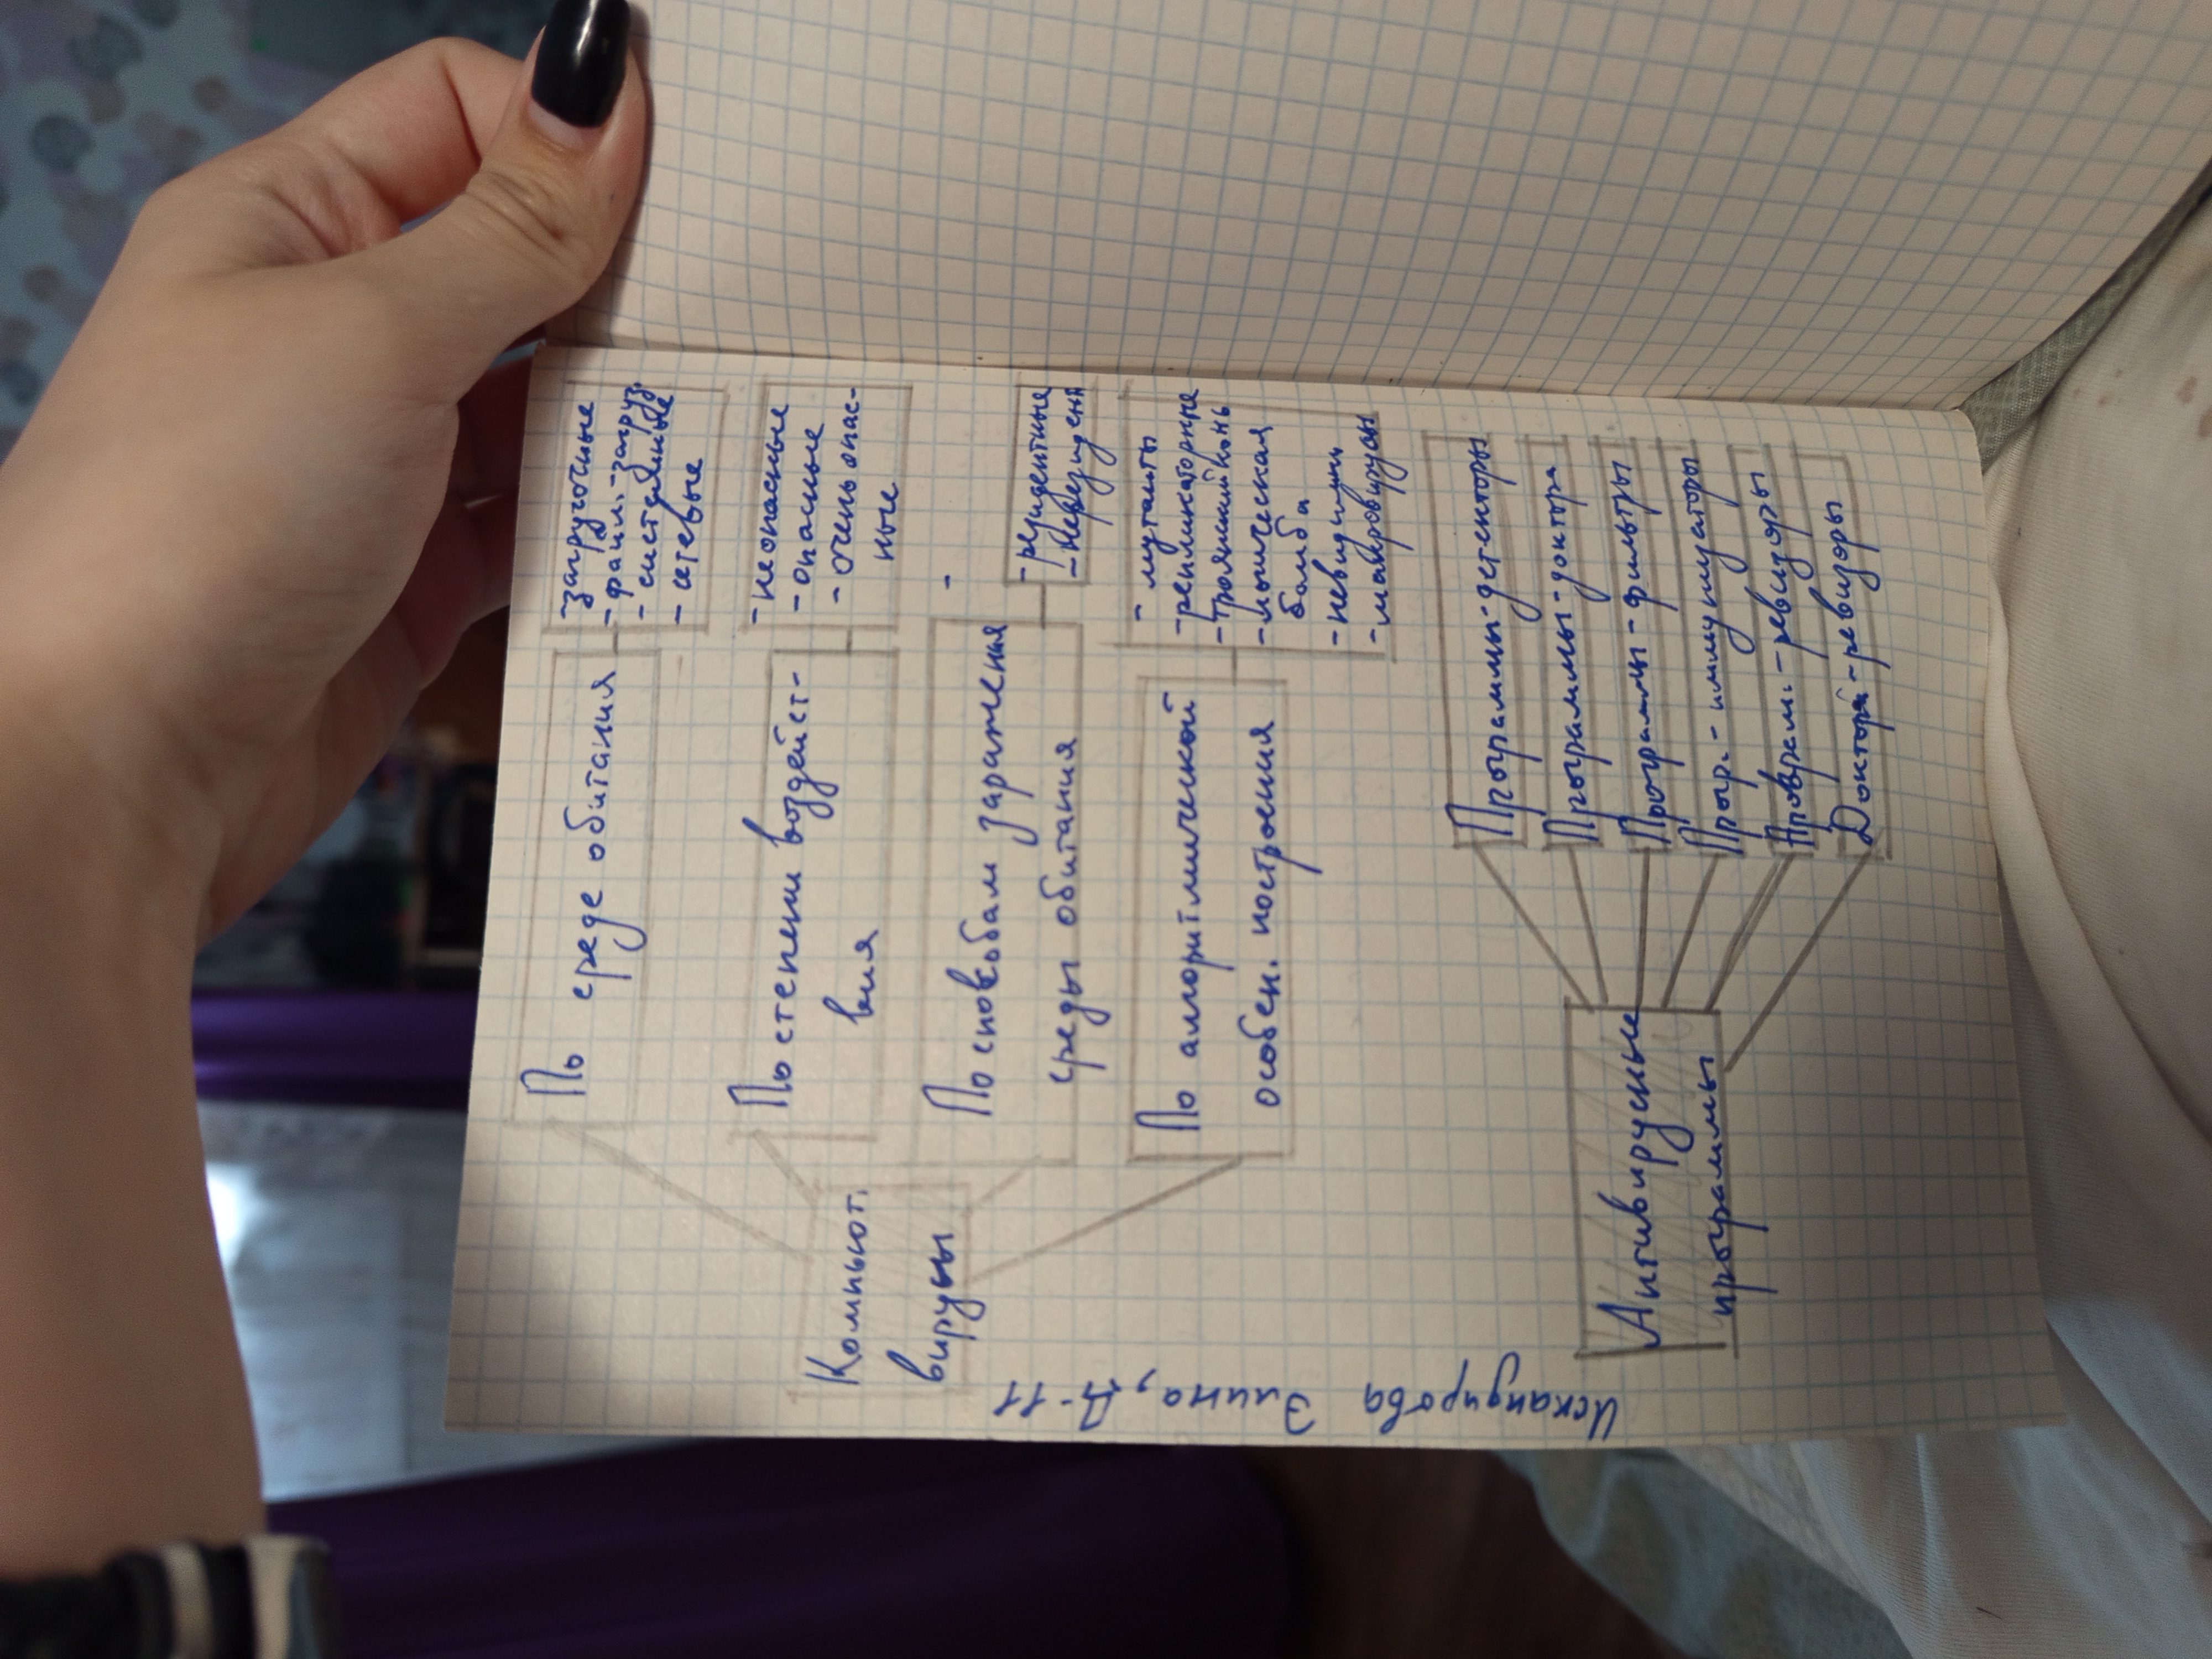 Искандирова Элина, Д-11
Компьют.
вирусы
По среде обитания
-загрузочные
-файл.-загруз.
-системные
-сетевые
По степени воздейст-
вия
-неопасные
-опасные
-очень опас-
ные
По способам заражения
среды обитания
-
-резидентные
-нерезидент
По алгоритмической
особен. построения
- мутанты
-репликаторные
-троянский конь
-логическая
бомба
-невидимки
-макровирусы
Антивирусные
программы
Программы-детекторы
Программы-доктора
Программы-фильтры
Прогр.-иммунизаторы
Програм.-ревизоры
Доктора-ревизоры